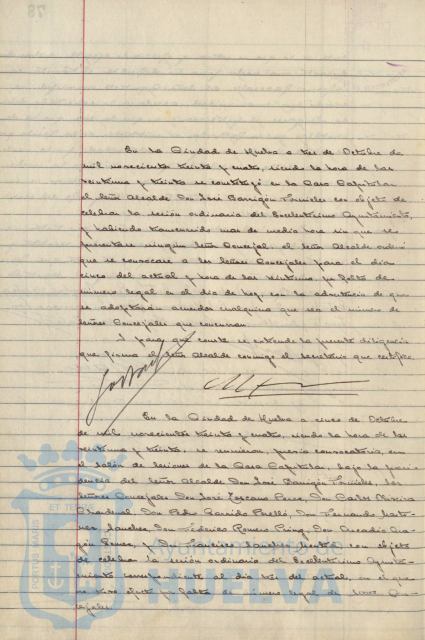 78
En la Ciudad de Huelva a tres de Octubre de
mil novecientos treinta y cuatro, siendo la hora de las
veintiuna y treinta se constituyó en la Casa Capitular
el Señor Alcalde Don José Barrigón Fornieles con objeto de
celebrar la sesión ordinaria del Excelentísimo Ayuntamiento,
y habiendo transcurrido mas de media hora sin que se
presentara ningún Señor Concejal, el Señor Alcalde ordenó
que se convocara a los Señores Concejales para el día
cinco del actual y hora de las veintiuna, por falta de
número legal en el día de hoy, con la advertencia de que
se adoptarán acuerdos cualquiera que sea el número de
Señores Concejales que concurran.
Y para que conste se extiende la presente diligencia
que firma el Señor Alcalde conmigo el Secretario que certifico.
En la Ciudad de Huelva a cinco de Octubre
de mil novecientos treinta y cuatro, siendo la hora de las
veintiuna y treinta, se reunieron, previa convocatoria, en
el salón de sesiones de la Casa Capitular, bajo la presi-
dencia del Señor Alcalde Don José Barrigón Fornieles, los
Señores Concejales Don José Toscano Pérez, Don Carlos Oliveira
Don Pedro Garrido Perelló, Don Fernando
Sánchez, Don Federico Romero Don Arcadio
y Don con objeto
de celebrar la sesión ordinaria del Excelentísimo Ayunta-
miento correspondiente al día tres del actual, en el que
no tuvo efecto por falta de número legal de Con-
cejales.
PORTUS MARIS ET TER
Ayuntamiento de
HUELVA